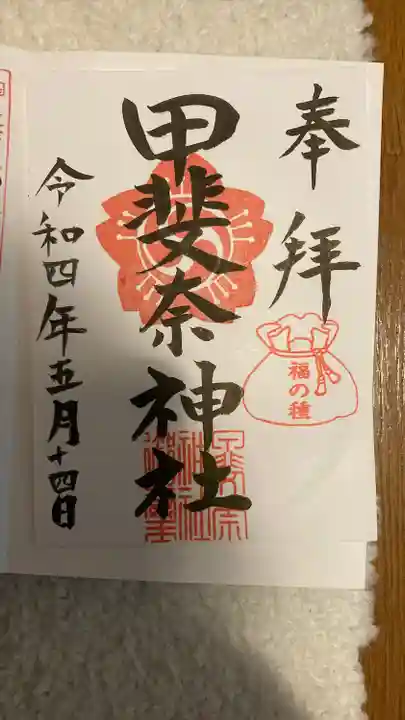 奉拝
福の種
甲斐奈神社
令和四年五月十四日